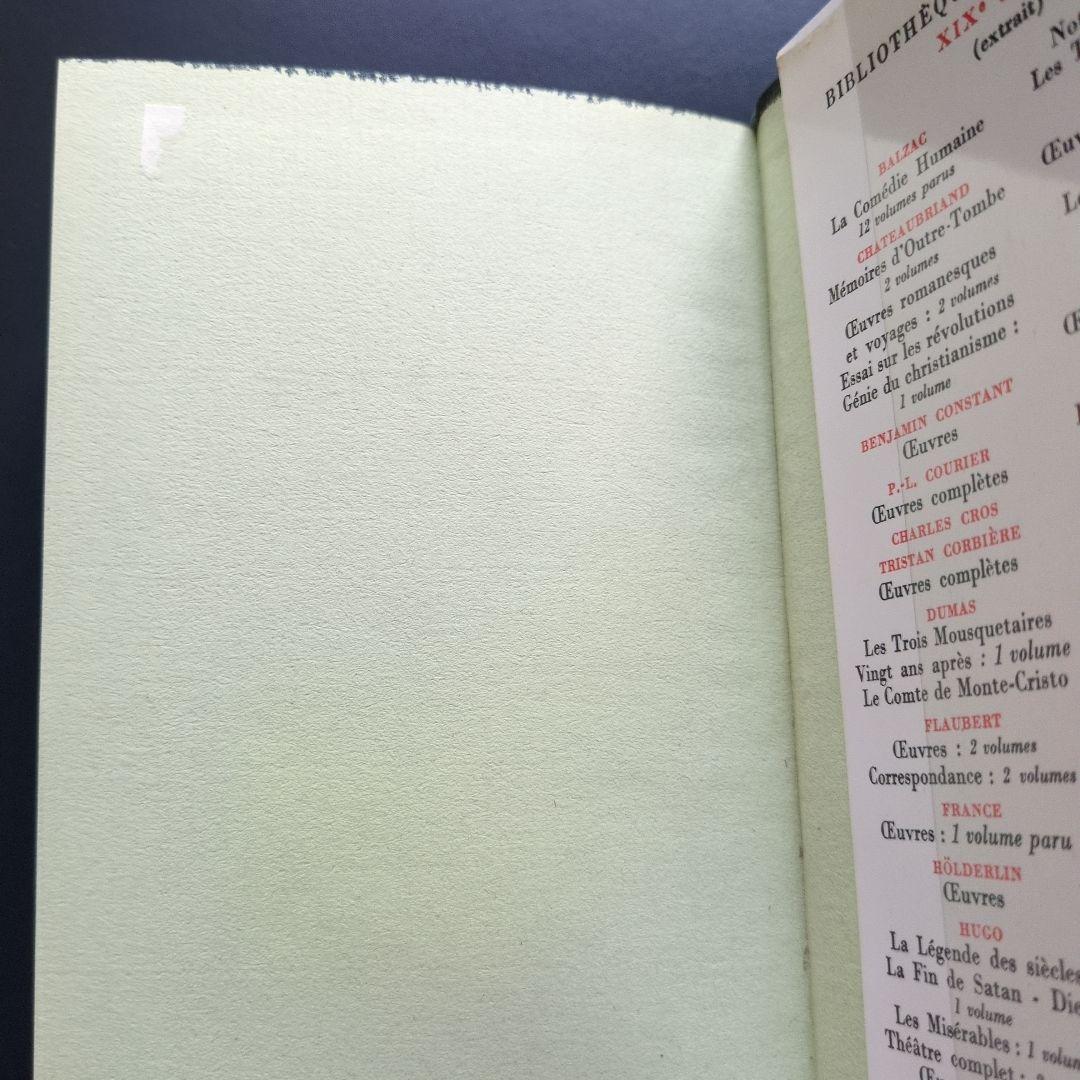 BIBLIOTHÈQ
XIXᵉ
(extrait)
BALZAC
La Comédie Humaine
12 volumes parus
CHATEAUBRIAND
Mémoires d'Outre-Tombe
2 volumes
Œuvres romanesques
et voyages : 2 volumes
Essai sur les révolutions
Génie du christianisme :
1 volume
BENJAMIN CONSTANT
Œuvres
P.-L. COURIER
Œuvres complètes
CHARLES CROS
TRISTAN CORBIÈRE
Œuvres complètes
DUMAS
Les Trois Mousquetaires
Vingt ans après : 1 volume
Le Comte de Monte-Cristo
FLAUBERT
Œuvres : 2 volumes
Correspondance : 2 volumes
FRANCE
Œuvres : 1 volume paru
HÖLDERLIN
Œuvres
HUGO
La Légende des siècles
La Fin de Satan - Die
1 volume
Les Misérables : 1 volum
Théâtre complet :
Les